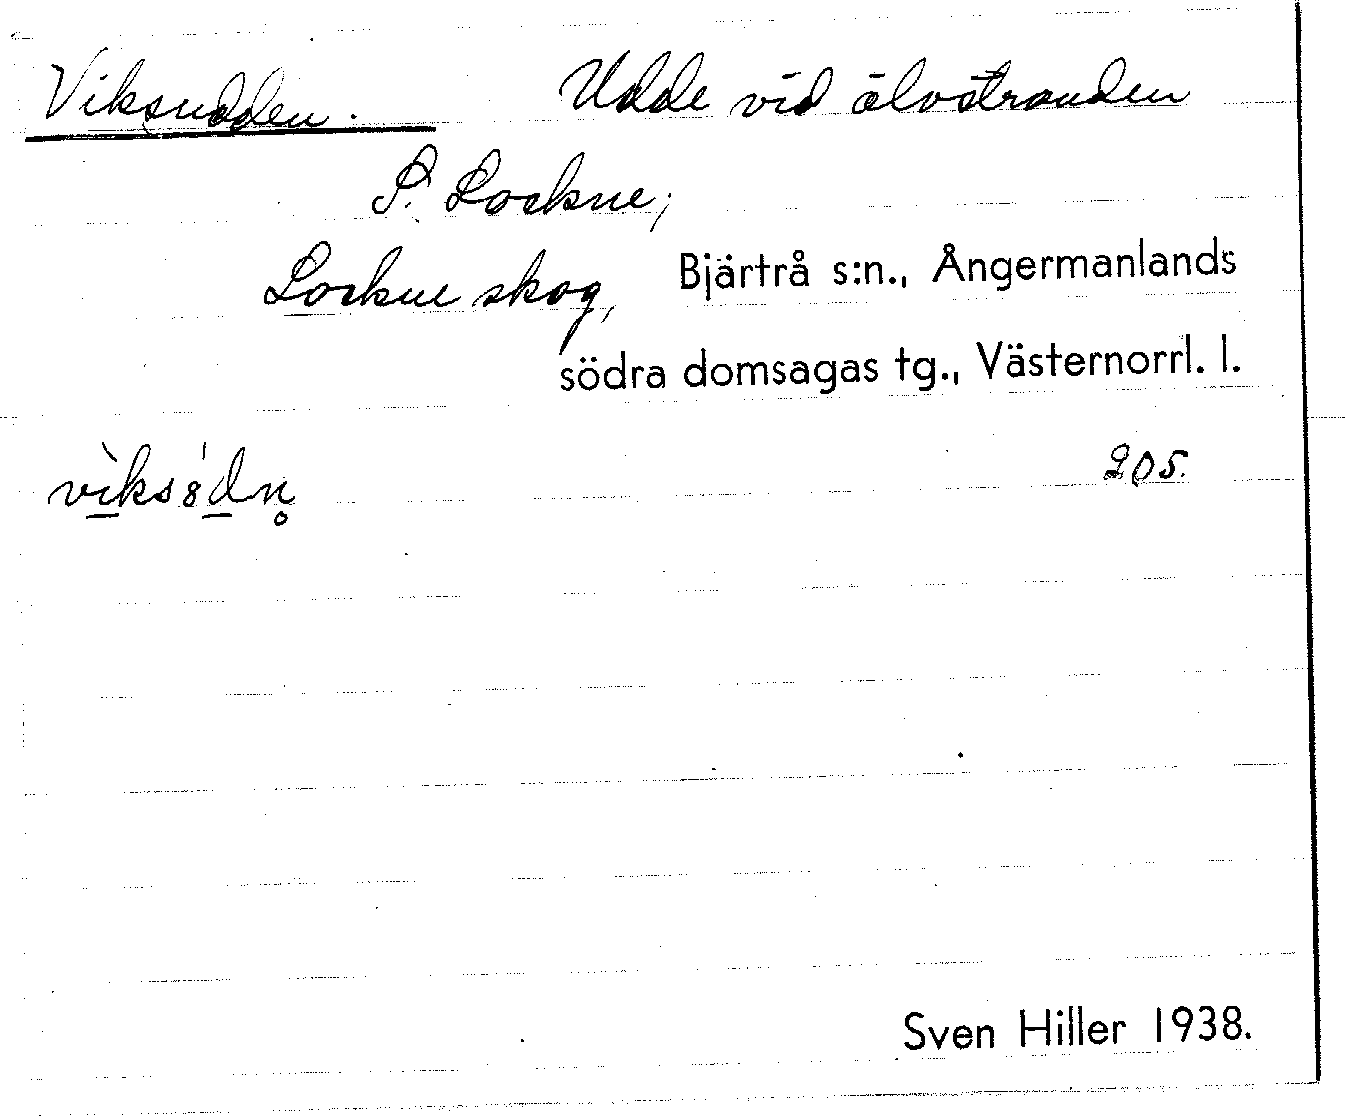 Viksudden. Udde vid älvstranden
S. Lockne;
Lockne skog, Bjärtrå s:n., Ångermanlands
södra domsagas tg., Västernorrl. l.
vìks8'dn̥ 205.
Sven Hiller 1938.